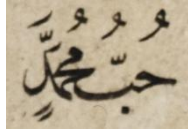 حُبُّ مُحَمَّدٍ